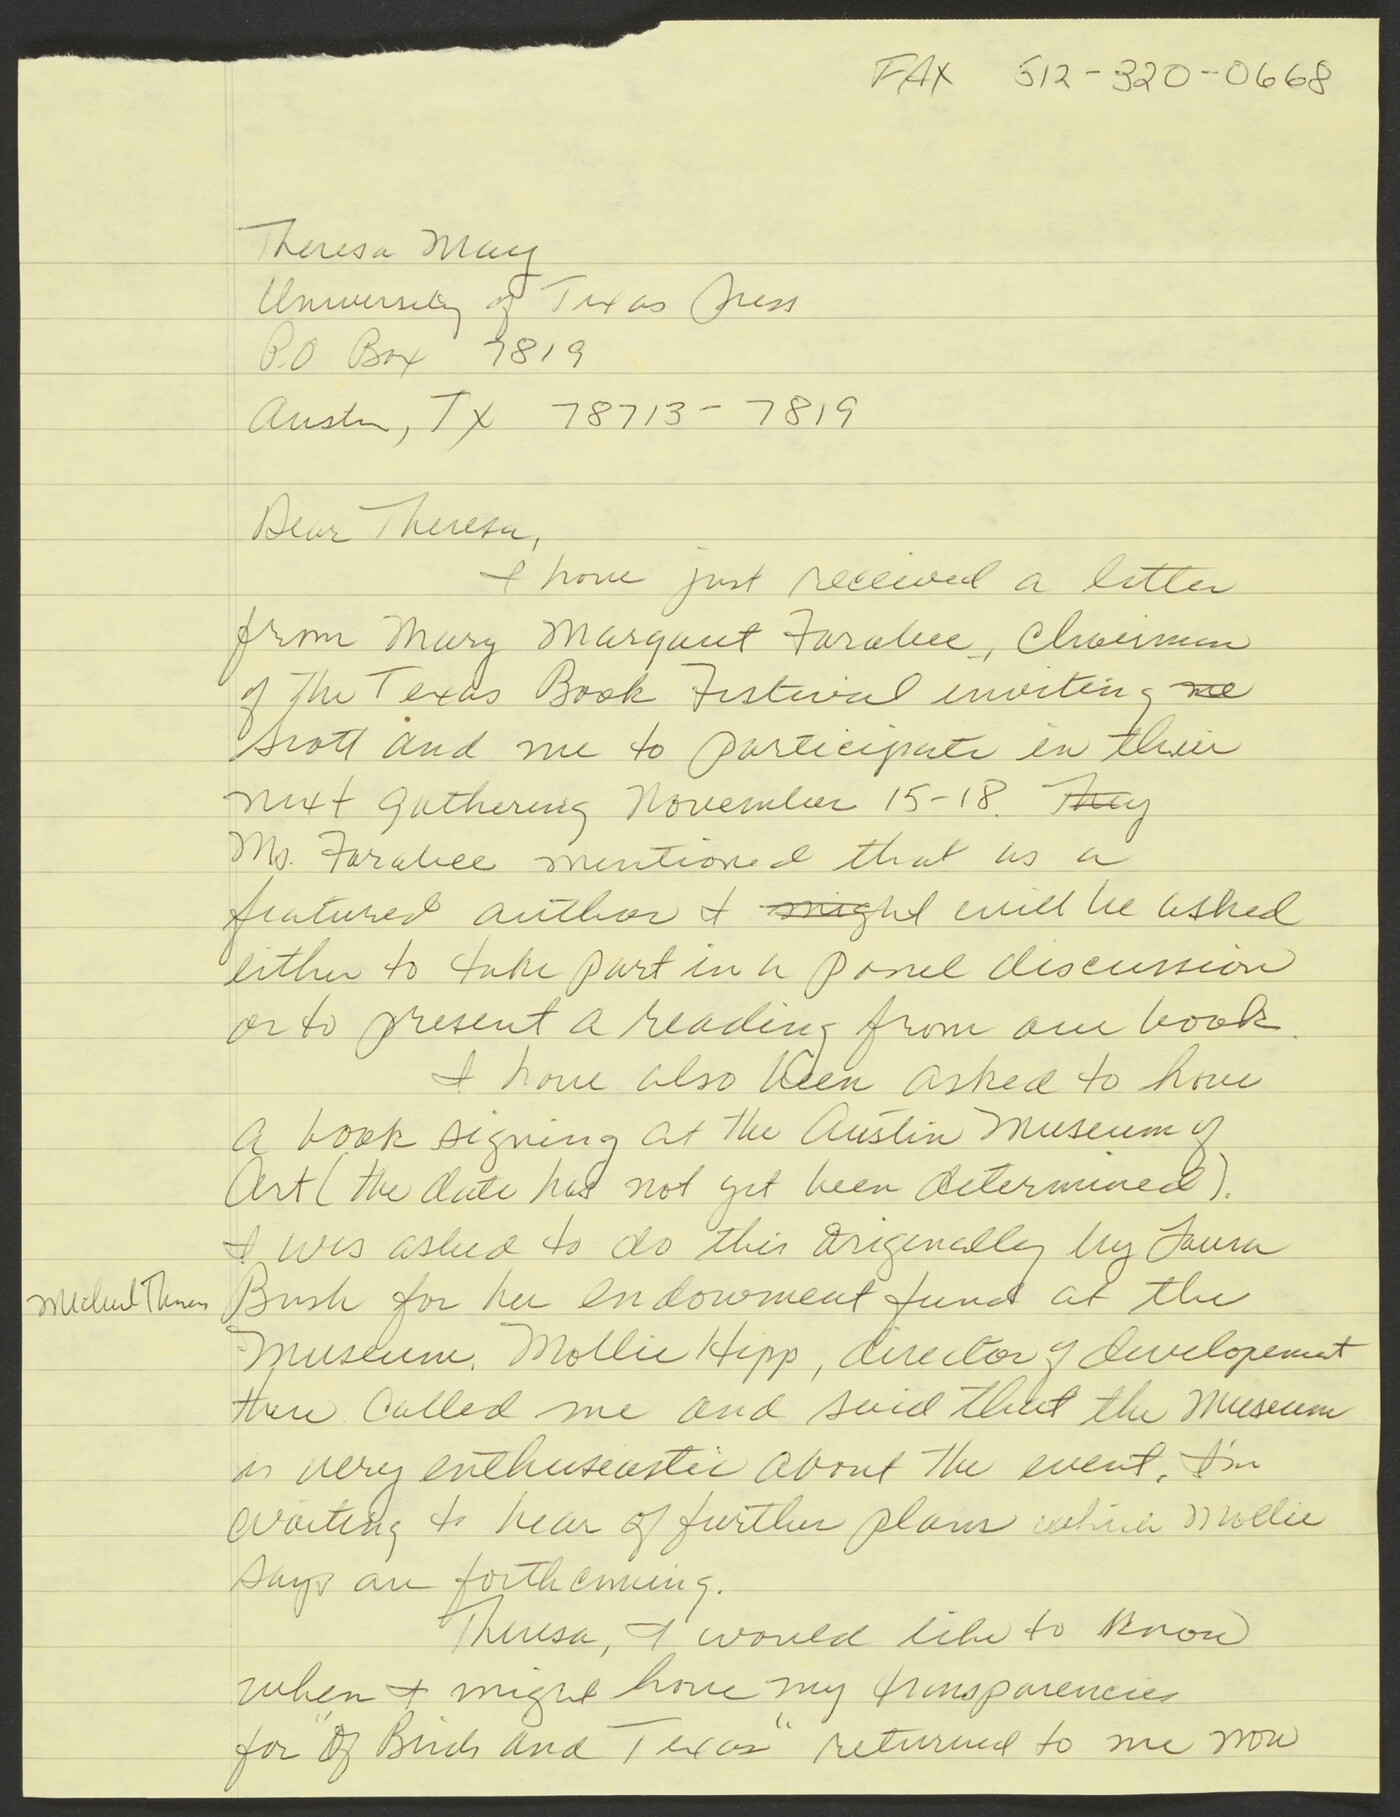 FAX 512-320-0668
Theresa May
University of Texas Press
P.O Box 7819
Austin, TX 78713-7819
Dear Theresa,
I have just received a letter
from Mary Margaret Farabee, Chairman
of The Texas Book Festival inviting me
Scott and me to participate in their
next gathering November 15-18. They
Ms. Farabee mentioned that as a
featured author I might will be asked
either to take part in a panel discussion
or to present a reading from our book.
I have also been asked to have
a book signing at the Austin Museum of
Art (the date has not yet been determined).
I was asked to do this originally by Laura
Bush for her endowment fund at the
Michael
Museum. Mollie Hipp, director of developement
there called me and said that the Museum
is very enthusiastic about the event. I'm
waiting to hear of further plans which Mollie
says are forthcoming.
Theresa, I would like to know
when I might have my transparencies
for "Of Birds and Texas" returned to me now